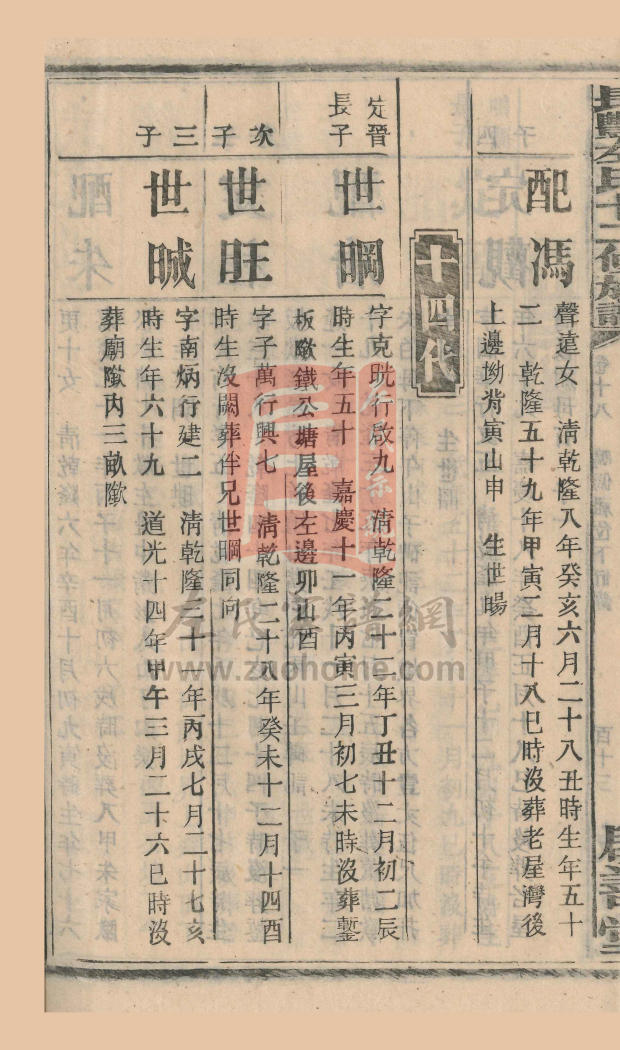 配馮
聲遠女　清乾隆八年癸亥六月二十八丑時生年五十
二　乾隆五十九年甲寅二月十八巳時沒葬老屋灣後
上邊坳背寅山申　生世暘
十四代
定晉
長子
世晍
字克晄行啟九　清乾隆二十二年丁丑十二月初二辰
時生年五十　嘉慶十一年丙寅三月初七未時沒葬鏨
板歘鐵公塘屋後左邊卯山酉
次子
世旺
字子萬行興七　清乾隆二十八年癸未十二月十四酉
時生沒闕葬伴兄世晍同向
三子
世晠
字南炳行建二　清乾隆三十一年丙戌七月二十七亥
時生年六十九　道光十四年甲午三月二十六巳時沒
葬廟歘內三畝歘
左氏家譜網
www.zuohome.com